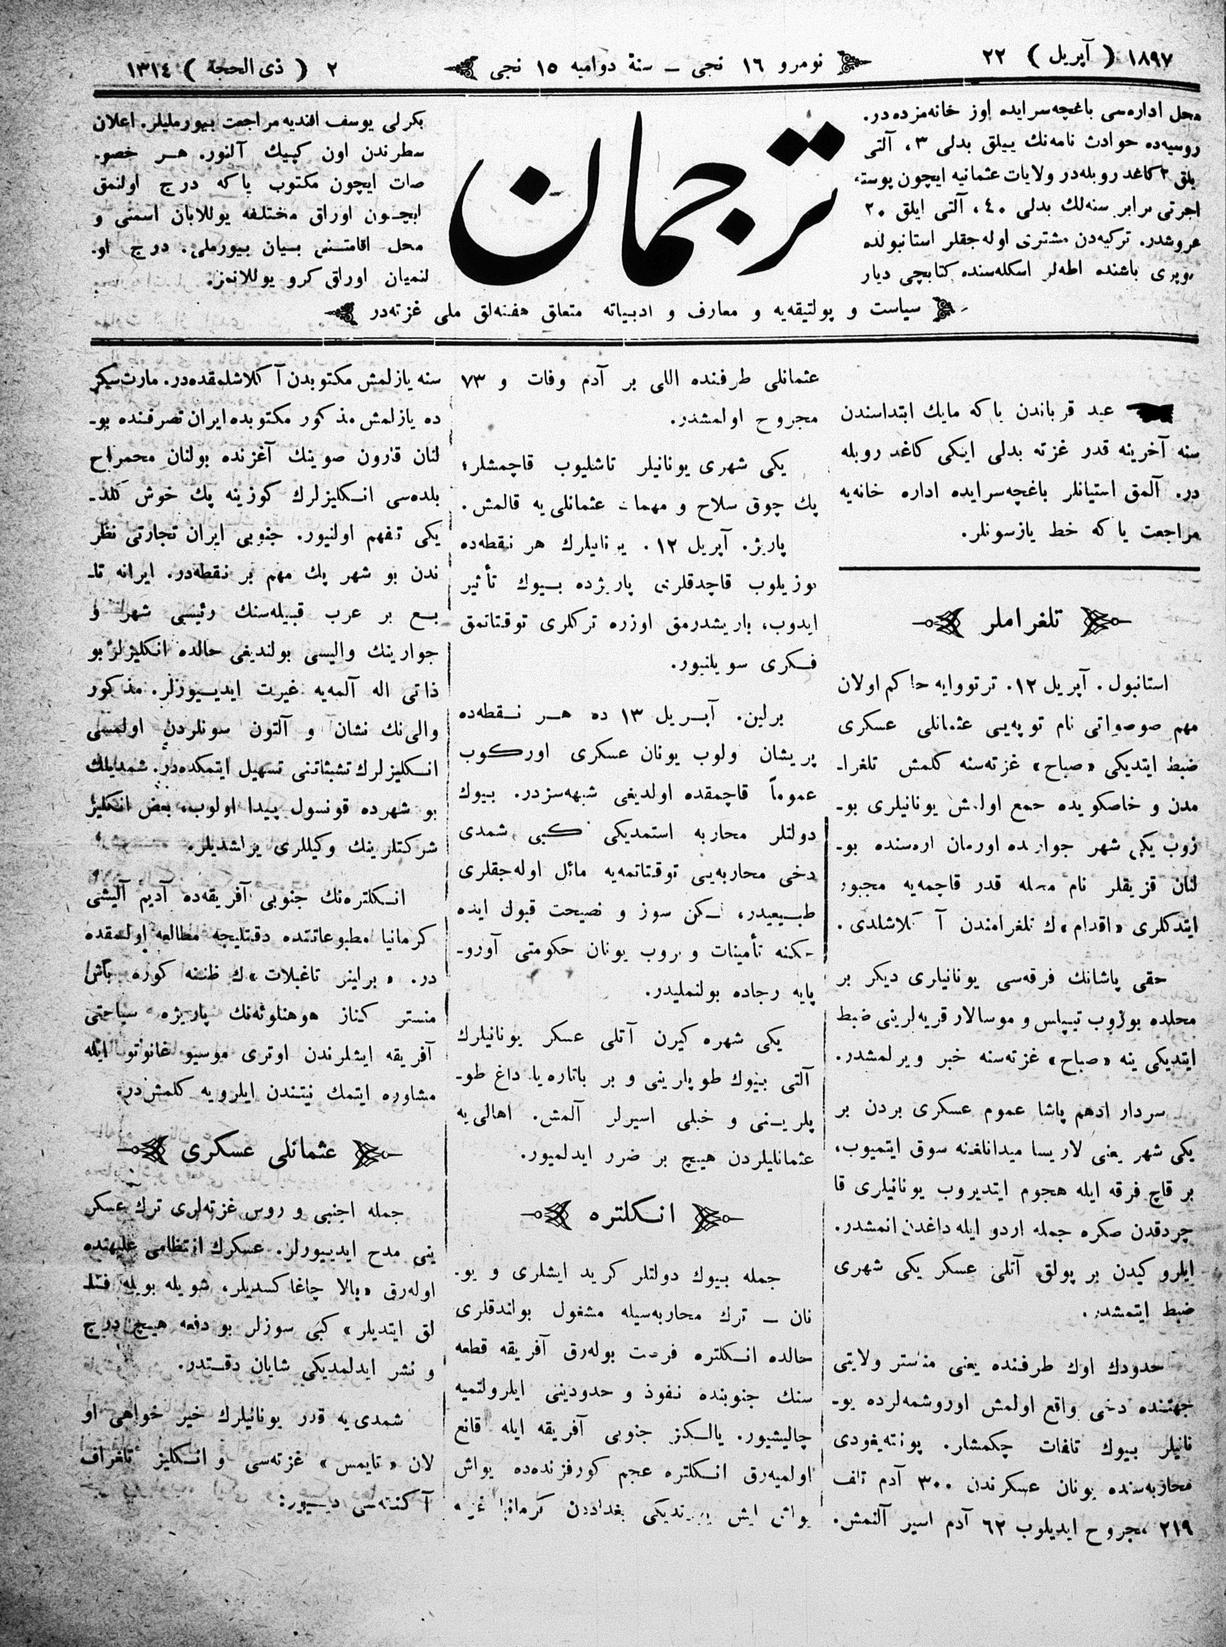 ١٨٩٧ ( آپریل ) ٢٢
نومرو ١٦ نجی ــ سنهٔ دوامیه ١٥ نجی
٢ ( ذی الحجة ) ١٣١٤
محل اداره‌سی باغچه‌سرایده اوز خانه‌مزده‌در.
روسیه‌ده حوادث نامه‌نك ییللق بدلی ٣، آلتی
یلق ٢ كاغد روبله‌در ولایات عثمانیه ایچون پوسته
اجرتی برابر سنه‌لك بدلی ٤٠، آلتی ایلق ٢٠
غروشدر. تركیه‌دن مشتری اوله‌جقلر استانبولده
كوپری باشنده اطه‌لر اسكله‌سنده كتابچی دیار
ترجمان
بكرلی یوسف افندیه مراجعت بیورملیلر. اعلان
سطرندن اون كپیك آلنور. هر خصو-
صات ایچون مكتوب یاكه درج اولنمق
ایچون اوراق مختلفه یوللایان اسمنی و
محل اقامتنی بیان بیورملی. درج او-
لنمیان اوراق كرو یوللانمز.
سیاست و پولتیقه‌یه و معارف و ادبیاته متعلق هفته‌لق ملی غزته‌در
عید قرباندن یاكه مایك ابتداسندن
سنه آخرینه قدر غزته بدلی ایكی كاغد روبله
در. آلمق استیانلر باغچه‌سرایده اداره خانه‌یه
مراجعت یاكه خط یازسونلر.
تلغراملر
استانبول. آپریل ١٢. ترتووایه حاكم اولان
مهم صوصواتی نام توپه‌یی عثمانلی عسكری
ضبط ایتدیكی «صباح» غزته‌سنه كلمش تلغرا-
مدن و خاصكویده جمع اولمش یونانیلری بو-
زوب یكی شهر جوارنده اورمان اره‌سنده بو-
لنان قزیقلر نام محله قدر قاچمه‌یه مجبور
ایتدكلری «اقدام»ك تلغرامندن آكلاشلدی.
حقی پاشانك فرقه‌سی یونانیلری دیكر بر
محلده بوزوب تیپاس و موسالار قریه‌لرینی ضبط
ایتدیكی ینه «صباح» غزته‌سنه خبر ویرلمشدر.
سردار ادهم پاشا عموم عسكری بردن بر
یكی شهر یعنی لاریسا میدانلغنه سوق ایتمیوب،
بر قاچ فرقه ایله هجوم ایتدیروب یونانیلری قا
چردقدن صكره جمله اردو ایله داغدن انمشدر.
ایلرو كیدن بر پولق آتلی عسكر یكی شهری
ضبط ایتمشدر.
حدودك اوك طرفنده یعنی مناستر ولایتی
جهتنده دخی واقع اولمش اوروشمه‌لرده یو-
نانیلر بیوك تلفات چكمشلر. پونته‌یغودی
محاربه‌سنده یونان عسكرندن ٣٠٠ آدم تلف
٢١٩ مجروح ایدیلوب ٦٢ آدم اسیر آلنمش.
عثمانلی طرفنده اللی بر آدم وفات و ٧٣
مجروح اولمشدر.
یكی شهری یونانیلر تاشلیوب قاچمشلر؛
پك چوق سلاح و مهمات عثمانلی‌یه قالمش.
پاریژ. آپریل ١٢. یونانیلرك هر نقطه‌ده
بوزیلوب قاچدقلری پاریژده بیوك تأثیر
ایدوب، باریشدرمق اوزره تركلری توقتاتمق
فكری سویلنیور.
برلین. آپریل ١٣ ده هر نقطه‌ده
پریشان ولوب یونان عسكری اوركوب
عموماً قاچمقده اولدیغی شبهه‌سزدر. بیوك
دولتلر محاربه استمدیكی كبی شمدی
دخی محاربه‌یی توقتاتمه‌یه مائل اوله‌جقلری
طبیعیدر، لكن سوز و نصیحت قبول ایده
جكنه تأمینات ویروب یونان حكومتی آورو-
پایه رجاده بولنملیدر.
یكی شهره كیرن آتلی عسكر یونانیلرك
آلتی بیوك طوپارینی و بر باتاره‌یا داغ طو-
پلرینی و خیلی اسیرلر آلمش. اهالی‌یه
عثمانلیلردن هیچ بر ضرر ایدلمیور.
انكلتره
جمله بیوك دولتلر كرید ایشلری و یو-
نان ــ ترك محاربه‌سیله مشغول بولندقلری
حالده انكلتره فرصت بوله‌رق آفریقه قطعه
سنك جنوبنده نفوذ و حدودینی ایلرولتمیه
چالیشیور. یالكز جنوبی آفریقه ایله قانع
اولمیه‌رق انكلتره عجم كورفزنده‌ده یواش
یواش ایش یورتدیكی بغداددن كرمانیا غزته
سنه یازلمش مكتوبدن آكلاشلمقده‌در. مارت سكز
ده یازلمش مذكور مكتوبده ایران تصرفنده بو-
لنان قارون صوینك آغزنده بولنان محمراح
بلده‌سی انكلیزلرك كوزینه پك خوش كلد-
یكی تفهم اولنیور. جنوبی ایران تجارتی نظر
ندن بو شهر پك مهم بر نقطه‌در. ایرانه تا-
بع بر عرب قبیله‌سنك رئیسی شهر و
جوارینك والیسی بولندیغی حالده انكلیزلر بو
ذاتی اله آلمه‌یه غیرت ایدییورلر. مذكور
والی‌نك نشان و آلتون سونلردن اولمسی
انكلیزلرك تشبثاتنی تسهیل ایتمكده‌در. شمدیلك
بو شهرده قونسول پیدا اولوب، بعض انكلیز
شركتلرینك وكیللری یراشدیلر.
انكلتره‌نك جنوبی آفریقه‌ده آدیم آلیشی
كرمانیا مطبوعاتنده دقتلیجه مطالعه اولنمقده
در. «برلینر تاغبلات»ك ظننه كوره باش
منستر كناز هوهنلوئه‌نك پاریژه سیاحتی
آفریقه ایشلرندن اوتری موسیو غانوتو ایله
مشاوره ایتمك نیتندن ایلرویه كلمشدر.
عثمانلی عسكری
جمله اجنبی و روس غزته‌لری ترك عسكر
ینی مدح ایدییورلر. عسكرك انتظامی علیهنده
اوله‌رق «بالا چاغا كسدیلر، شویله بویله فنا-
لق ایتدیلر» كبی سوزلر بو دفعه هیچ درج
و نشر ایدلمدیكی شایان دقتدر.
شمدی‌یه قدر یونانیلرك خیر خواهی او
لان «تایمس» غزته‌سی و انكلیز تلغراف
آكنته‌سی دییور: